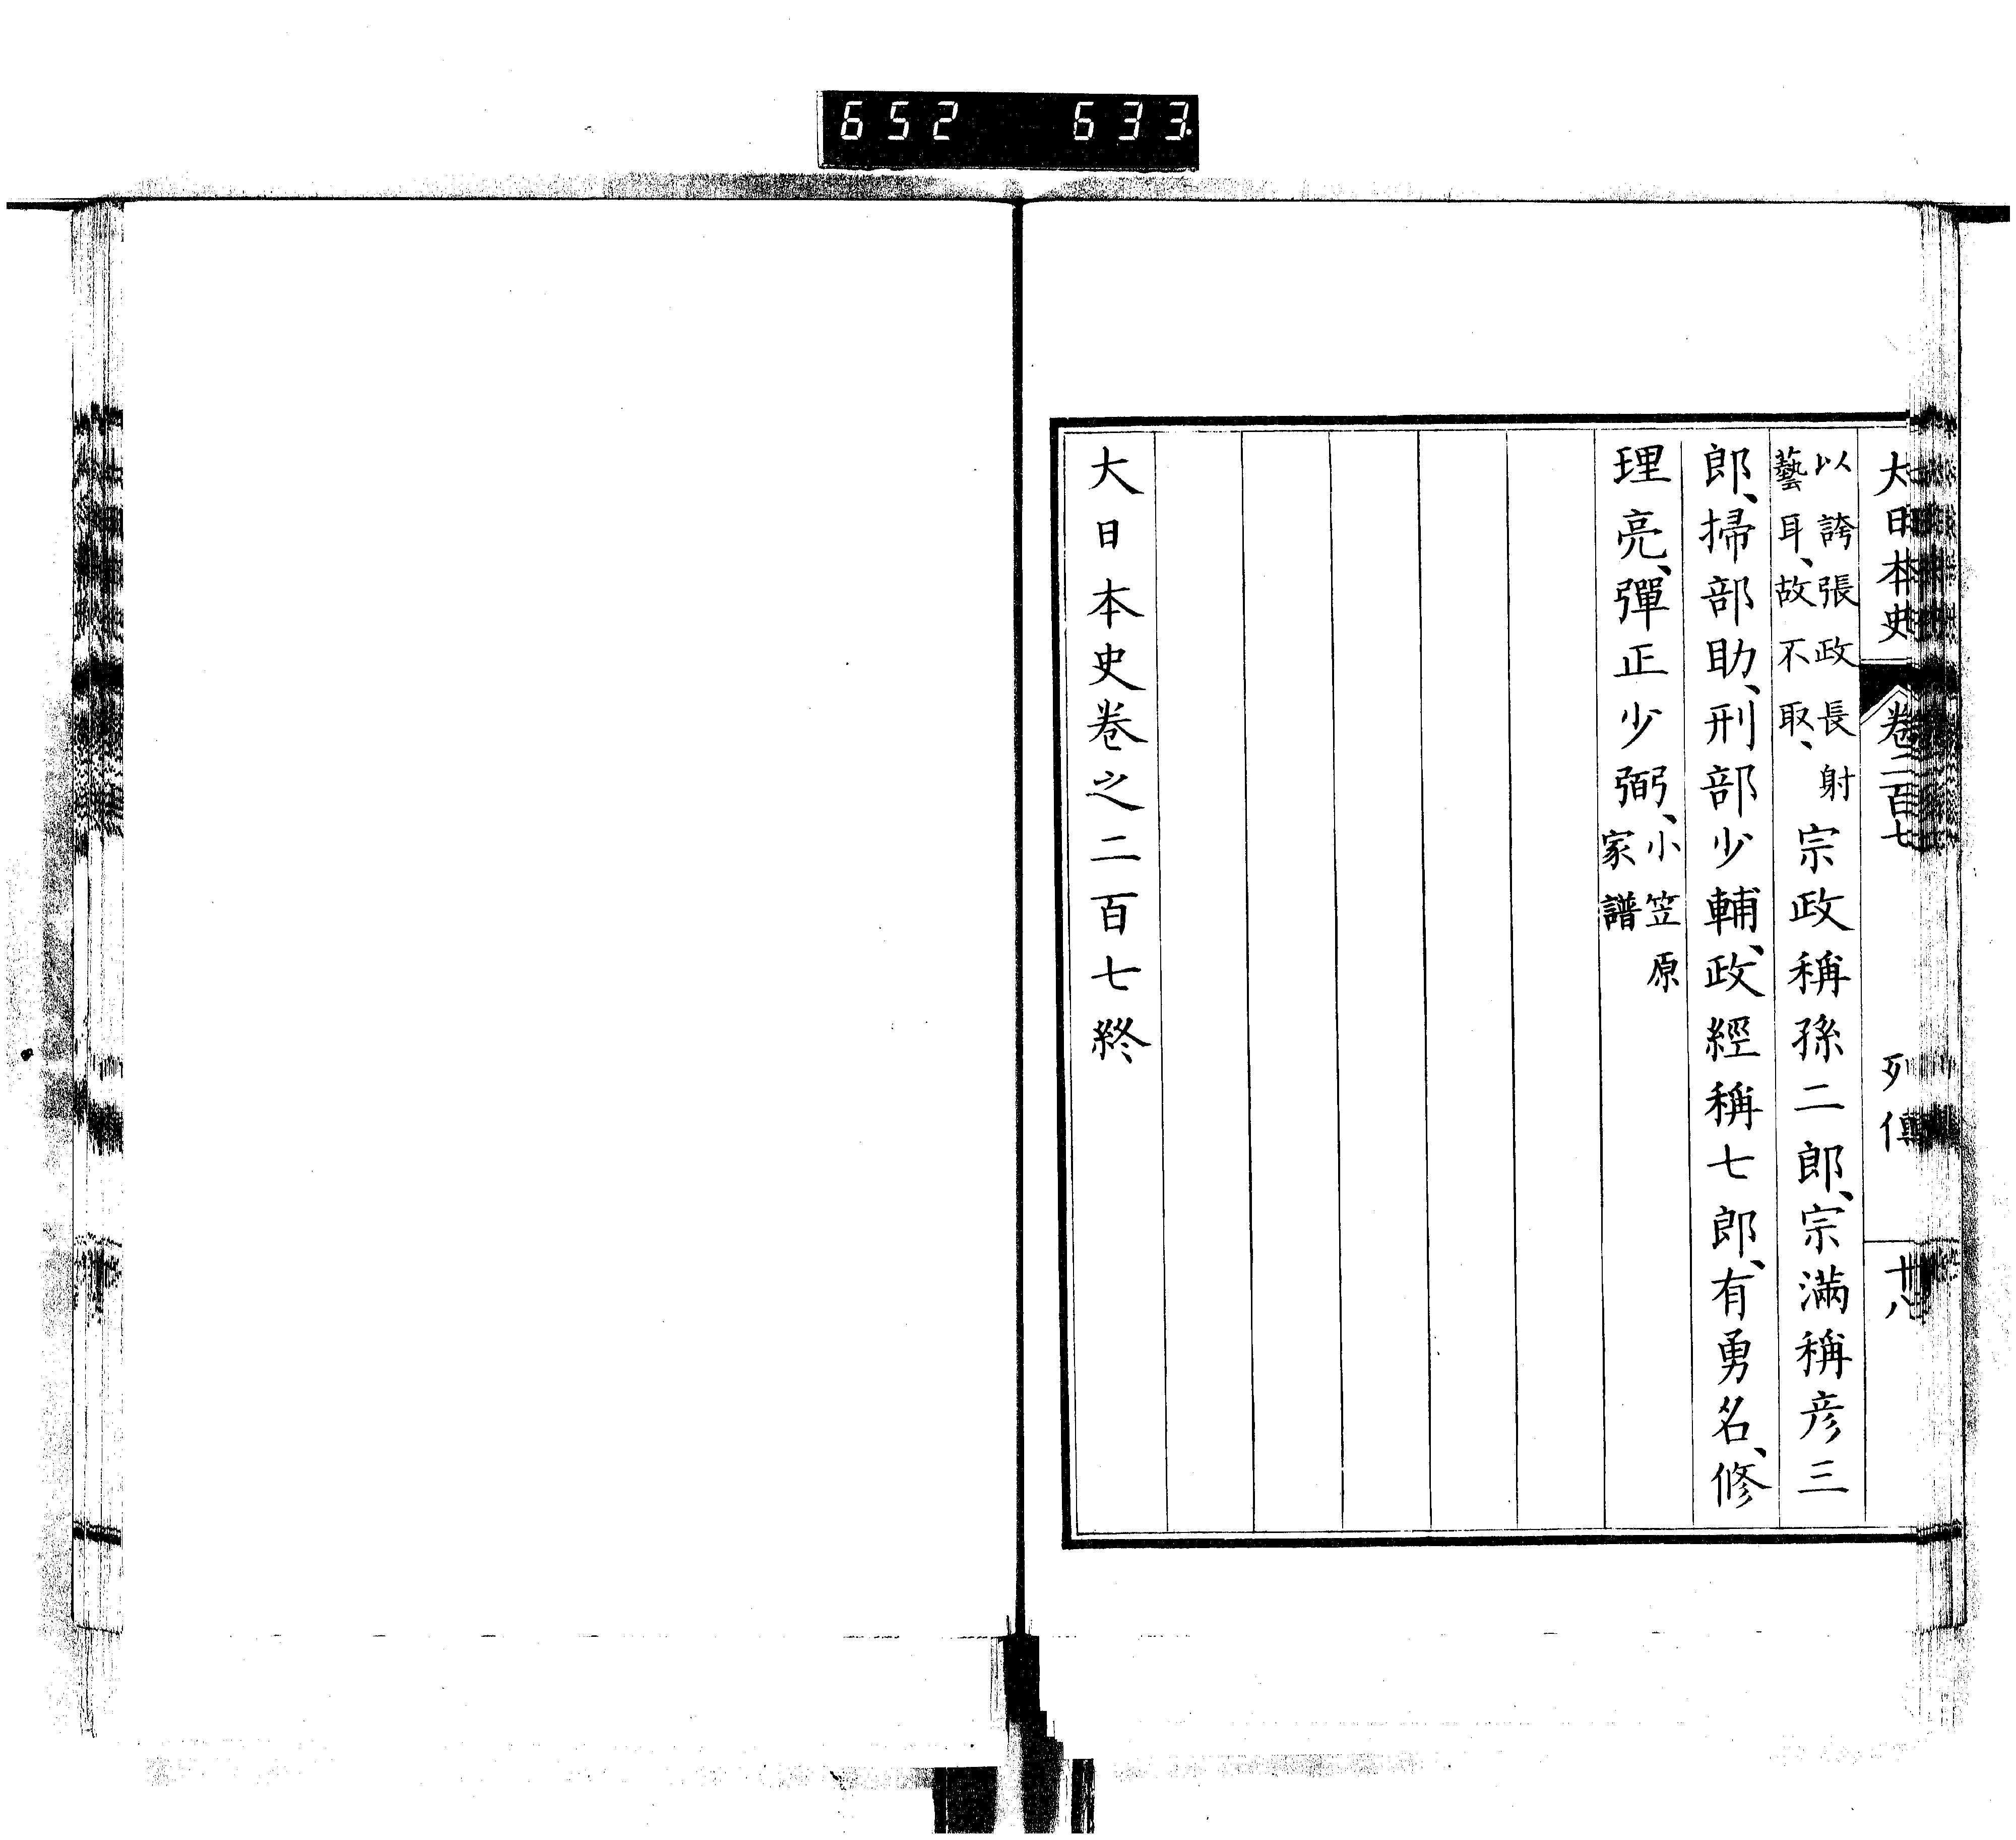 652 633
大日本史 卷二百七 列傳 十八
以誇張政長射
藝耳、故不取、
宗政稱孫二郎、宗滿稱彦三
郎、掃部助、刑部少輔、政經稱七郎、有勇名、修
理亮、彈正少弼、
小笠原
家譜
大日本史卷之二百七終